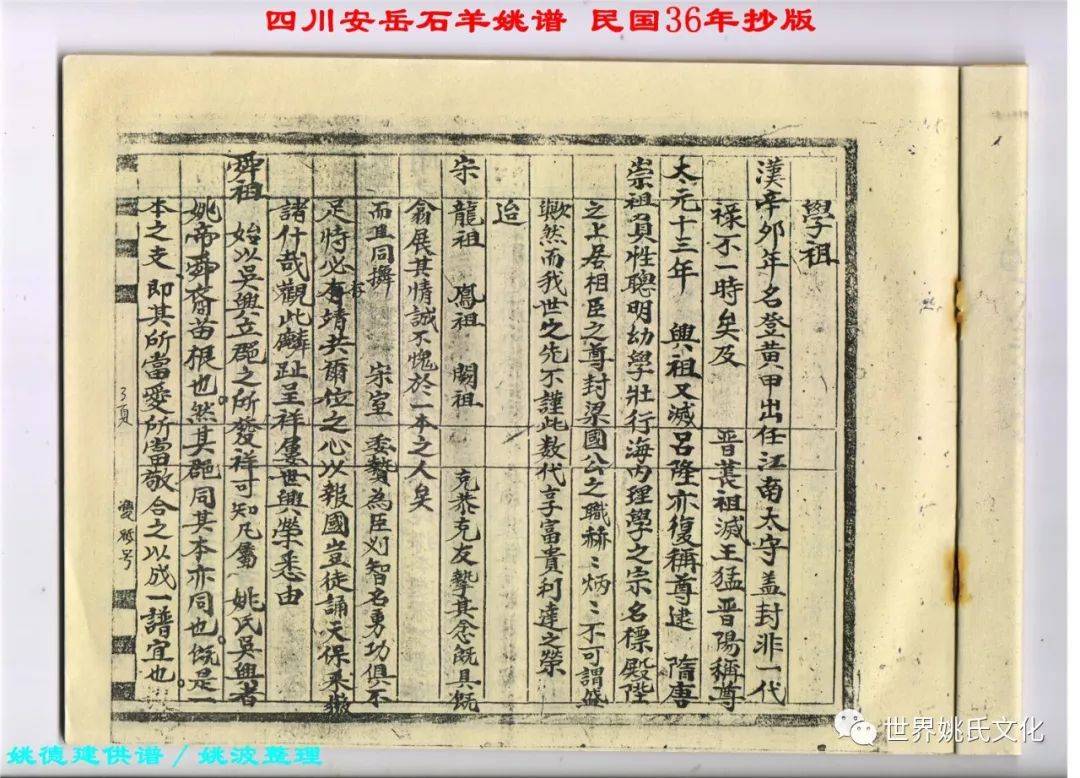 四川安岳石羊姚谱 民国36年抄版
學祖
漢辛夘年名登黄甲出任江南太守盖封非一代
禄不一時矣及 晋萇祖滅王猛晋陽稱尊
太元十三年 興祖又滅呂隆亦復稱尊逮 隋唐
崇祖負性聰明幼學壯行海内理學之宗名標殿陛
之上居相臣之尊封梁國公之職赫〻炳〻不可謂盛
歟然而我世之先不謹此数代享富貴利達之榮
迨
宋 龍祖 鳳祖 闕祖 克恭克友摯其念既具既
翕展其情誠不愧於一本之人矣
而且同攈 宋室 委贄為臣刈智名勇功俱不
足恃必有靖共爾位之心以報國豈徒誦天保釆薇
諸什哉觀此麟趾呈祥屢世興榮悉由
舜祖 始以吳興立郡之所發祥可知凡屬 姚氏吳興者
姚帝舜裔苗根也。然其郡同其本亦同也。既是一
本之支即其所當愛所當敬合之以成一譜宜也。
3頁
世界姚氏文化
姚德建供谱/姚波整理